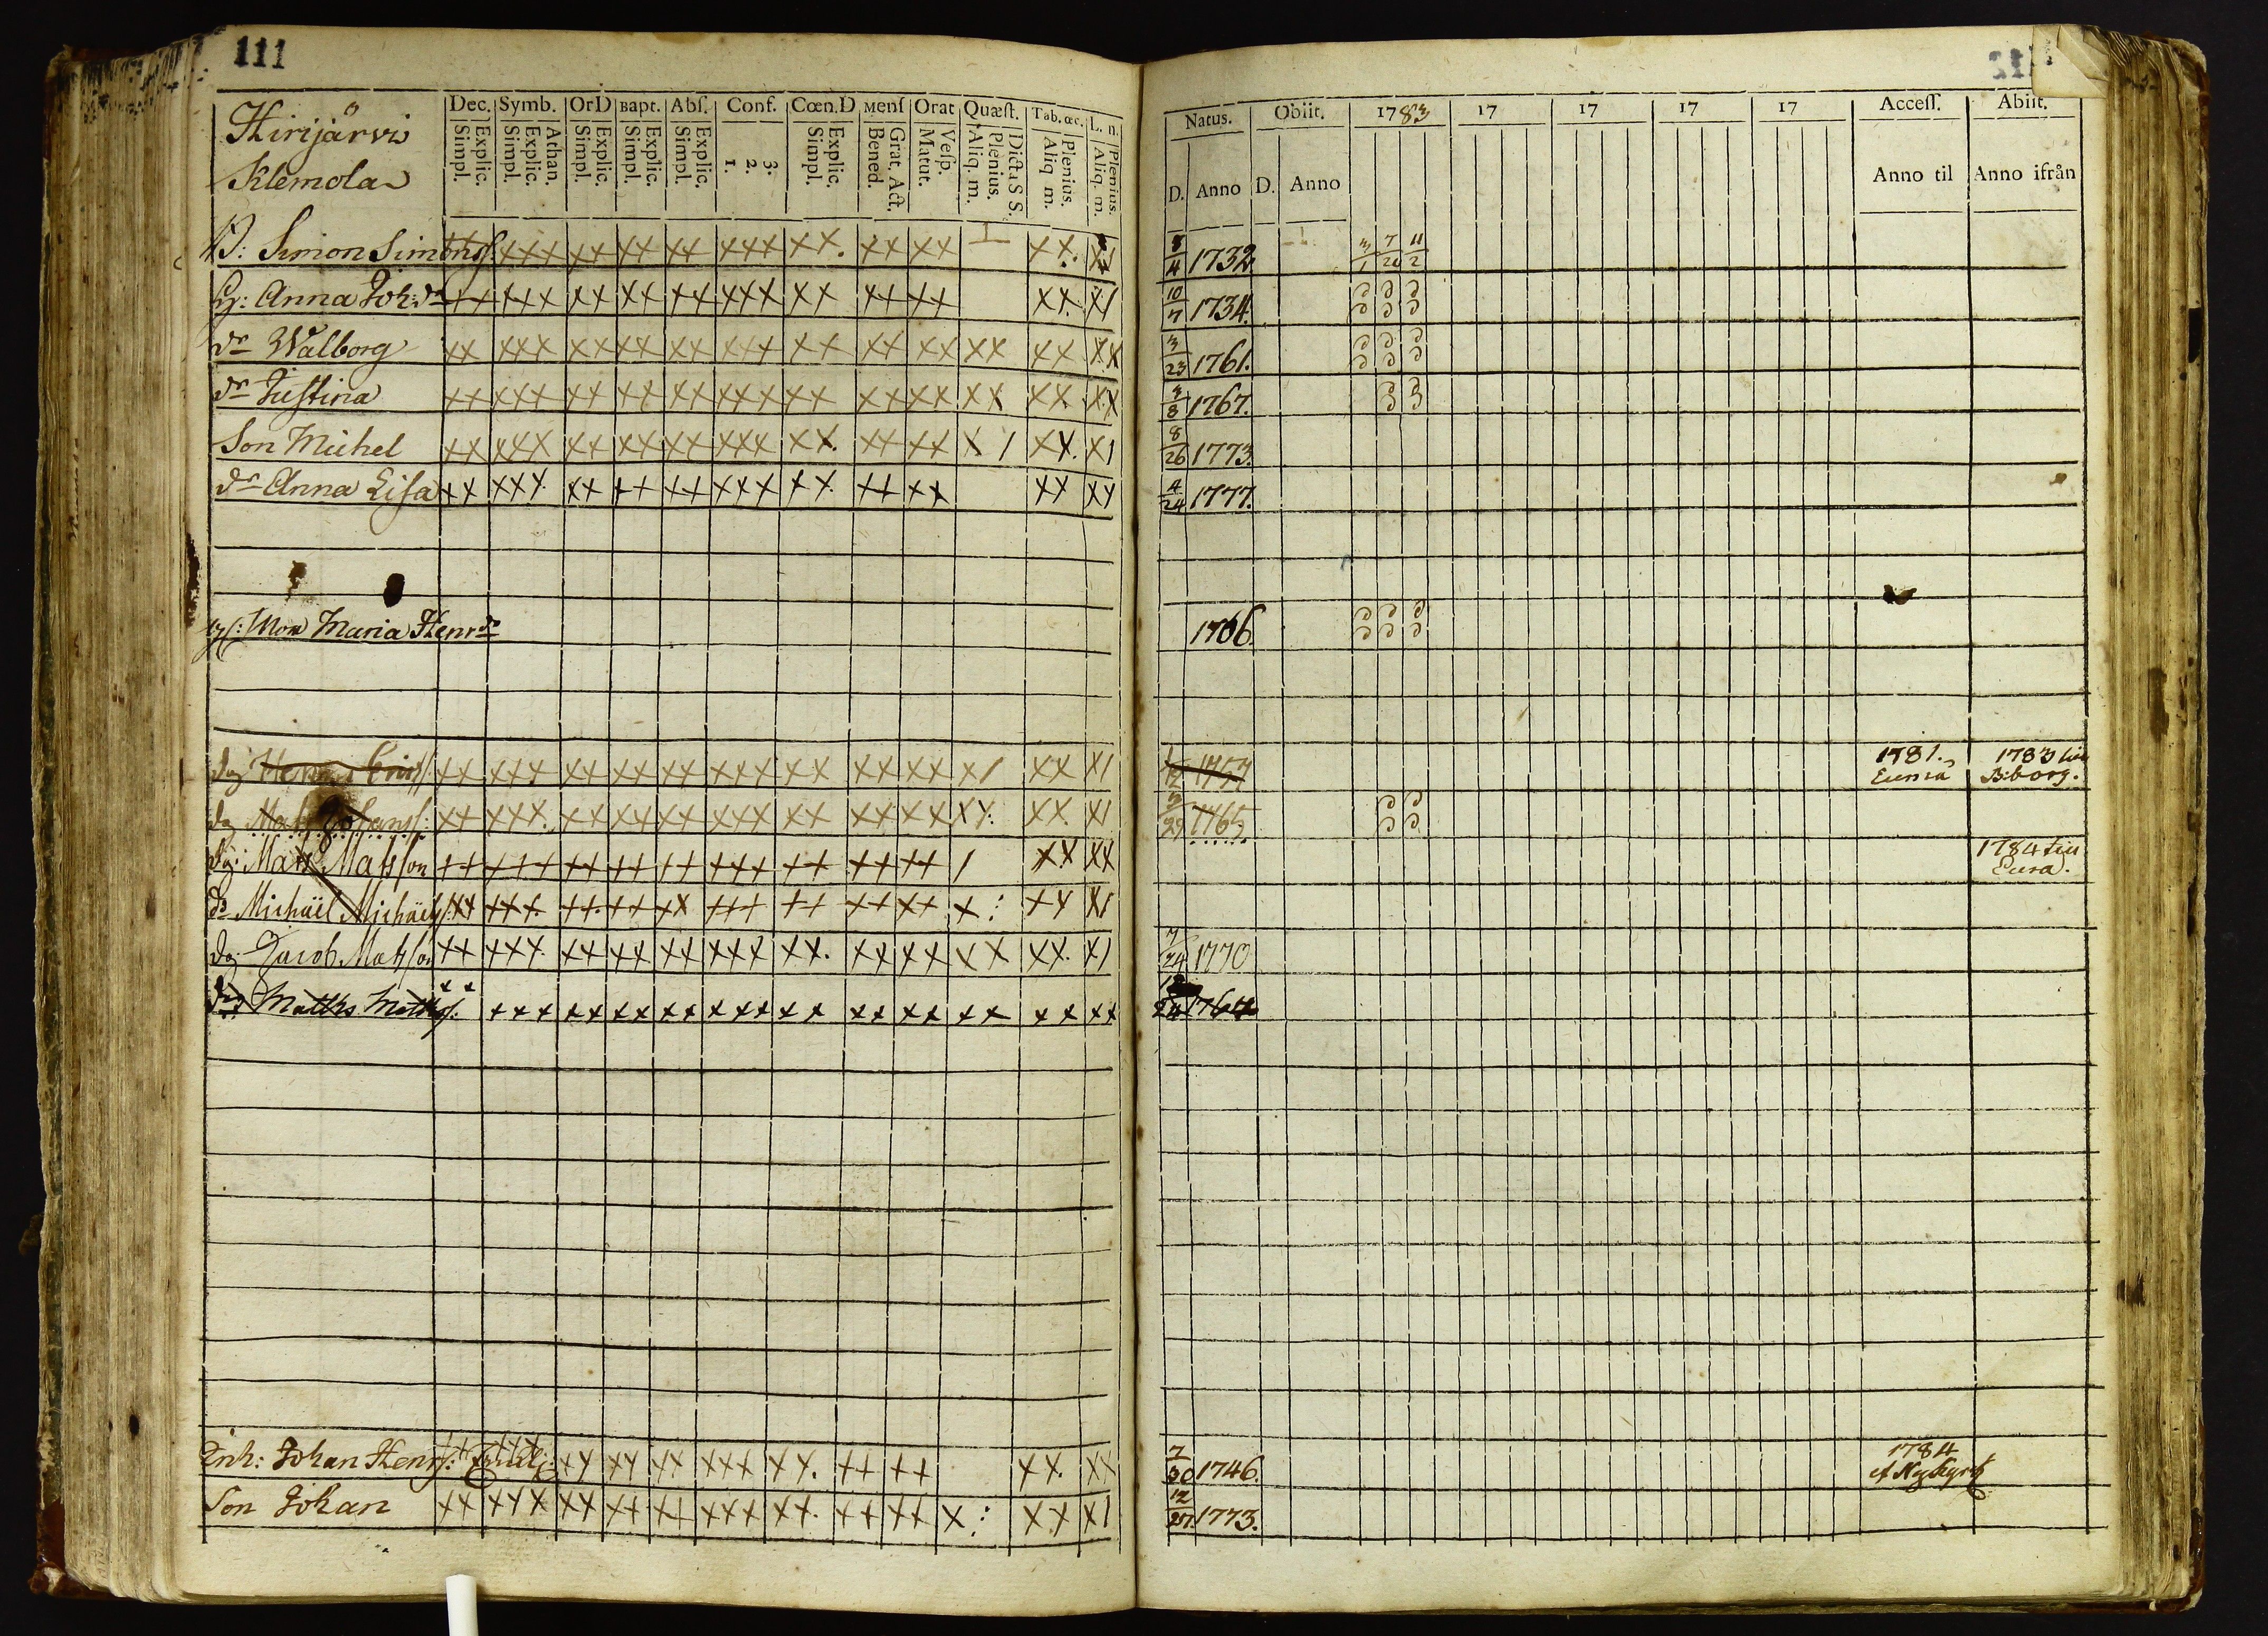 111
Hirijärvi
Klemola
Dec. Symb. OrD Bapt. Abſ. Conf. Cœn.D Menſ Orat Quæſt. Tab. œc. L. n.
Explic. Simpl. Athan. Explic. Simpl. Explic. Simpl. Explic. Simpl. Explic. Simpl. 3. 2. 1. Explic. Simpl. Grat. Act. Bened. Veſp. Matut. Dicta S S. Plenius. Aliq. m. Plenius. Aliq m. Plenius. Aliq. m.
Natus. Obiit. 1783 17 17 17 17 Acceſſ. Abiit.
D. Anno D. Anno Anno til Anno ifrån
Simon Simonſ: xx xxx xx xx xx xxx xx. xx xx xx. 8/4 1732 3/1 7/20 11/2
Hu: Anna Joh: dr xx xxx xx xx xx xxx xx xx xx xx. x/ 10/7 1734.
dr Walborg xx xxx xx xx xx xxx xx xx xx xx xx xx 3/23 1761.
dr Juſtina xx xxx xx xx xx xxx xx xx xx xx xx xx 1767.
Son Michel xx xxx xx xx xx xxx xx. xx xx x / xx. x/ 8/26 1773.
dr Anna Liſa xx xxx xx xx xx xxx xx. xx xx xx xx 4/24 1777.
Mor Maria Henr dr 1706.
dg xx xxx xx xx xx xxx xx xx xx x/ xx x/ 1781. Eura 1783 Biborg.
dg Mats Johansſ: xx xxx. xx xx xx xxx xx xx xx xx. xx x/ 29 1765
dg: Mats Matsſon xx xxx xx xx xx xxx xx xx xx / xx xx 1784 till Eura.
dr Michaël Michaelsſ: xx xxx. xx. xx xx xxx xx xx xx x : xx x/
dg Jacob Matsſon xx xxx. xx xx xx xxx xx. xx xx xx xx. x/ 7/24 1770
drg Matths Mathsſ: xx xxx xx xx xx xxx xx xx xx xx xx xx 1764
Inh: Johan Henrſ: xx xx xx xxx xx. xx xx xx. xx 7/30 1746. 1784 af Nykyrk
Son Johan xx xxx xx xx xx xxx xx. xx xx x : xx x/ 12/27. 1773.